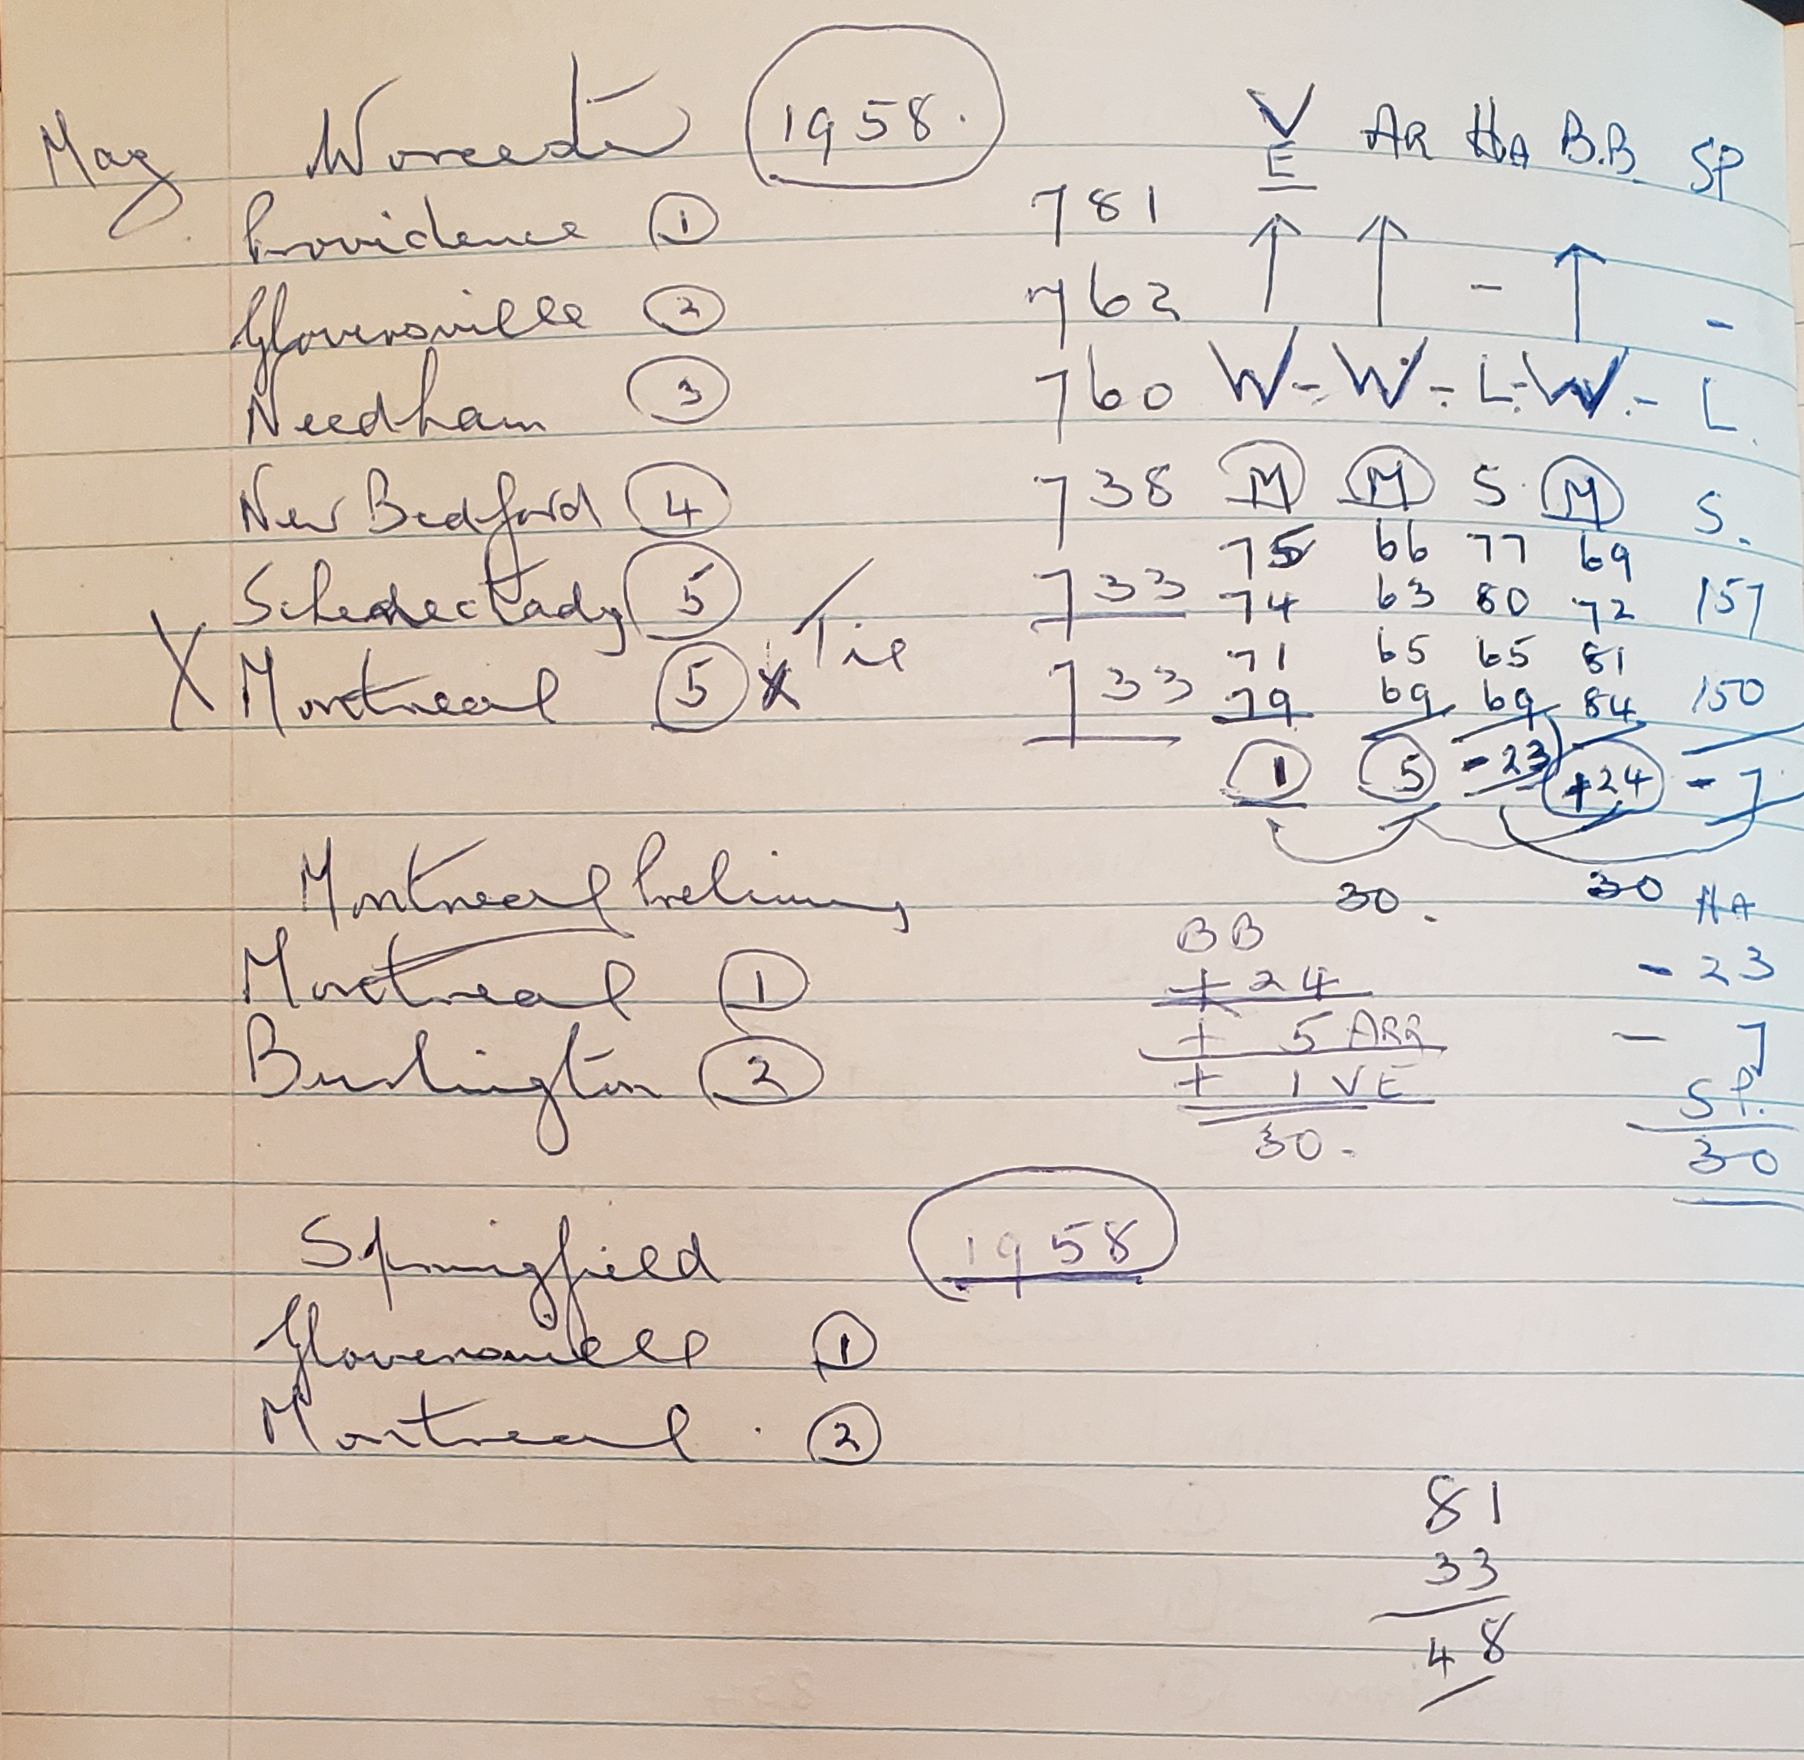 May Worcester 1958. VE AR HA B.B. SP
Providence 1 781
Gloversville 2 762 - -
Needham 3 760 W - W - L - W - L.
New Bedford 4 738 M M S M S.
75 66 77 69
Schenectady 5 733 74 63 80 72 157
X Montreal 5 x Tie 733 71 65 65 81
79 69 69 84 150
1 5 -23 +24 -7
Montreal Prelims 30. 30 HA
BB
Montreal 1 +24 -23
+ 5 ARR - 7
Burlington 2 + 1 VE SP.
30. 30
Springfield 1958
Gloversville 1
Montreal. 2
81
33
48